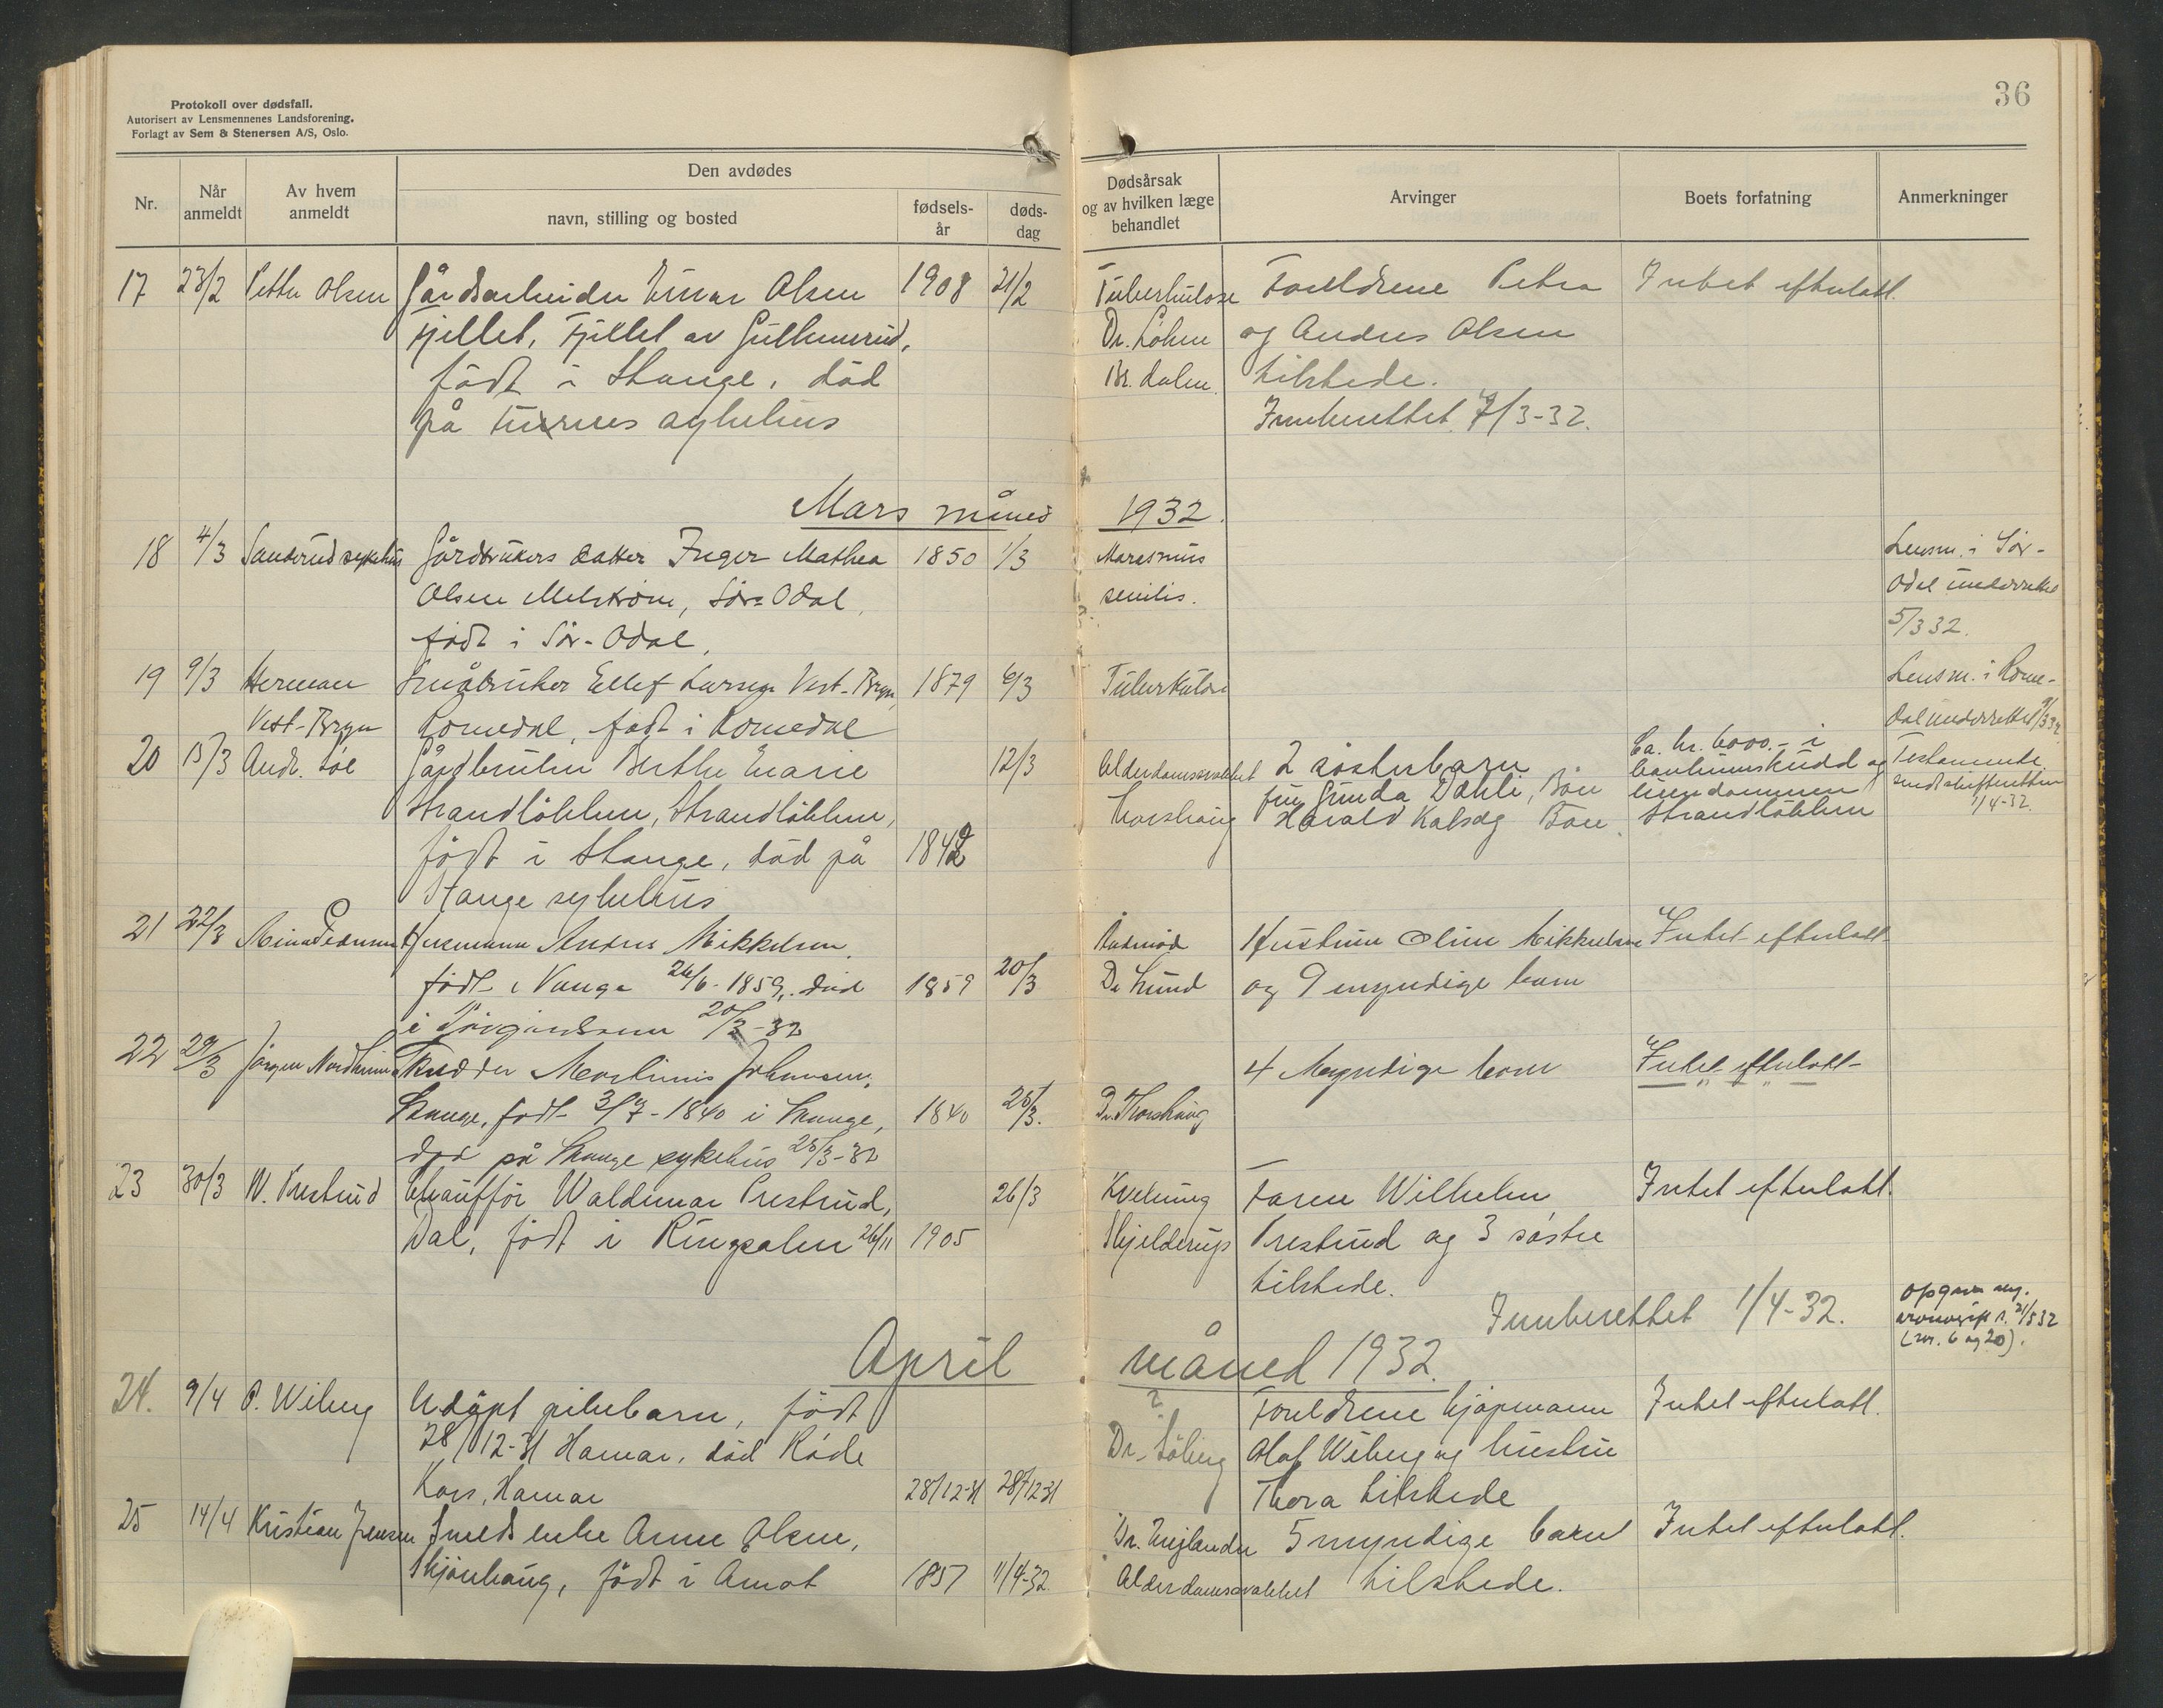 Protokoll over dødsfall.
Autorisert av Lensmennenes Landsforening.
Forlagt av Sem & Stenersen A/S, Oslo.
36
Nr.
Når anmeldt
Av hvem anmeldt
Den avdødes
navn, stilling og bosted
fødsels-år
døds-dag
Dødsårsak og av hvilken læge behandlet
Arvinger
Boets forfatning
Anmerkninger
17 23/2 Petter Olsen Gårdsarbeider Einar Olsen 1908 21/2 Tuberkulose Foreldrene Petra Intet efterlatt.
Fjellet, Fjellet av Gullhusrud, Dr. Løken og Anders Olsen
født i Stange, død Br. dalen tilstede.
på sykehus Innberettet 7/3-32.
Mars måned 1932.
18 4/3 Sanderud sykehus Gårdbrukers datter Inger Mathea 1850 1/3 Marasmus Lensm. i Sör-
Olsen Melström, Sör-Odal, senilis. Odal underrettet
født i Sör-Odal. 5/3 32.
19 9/3 Herman Småbruker Ellef Larsen Vest-Bryn, 1879 6/3 Tuberkulose Lensm. i Rome-
Vest-Bryn Romedal, født i Romedal dal underrettet 9/3 32.
20 15/3 Andr. Gårdbruker Berthe Marie 12/3 Alderdomssvakhet 2 søsterbarn Ca. kr. 6000.- i Testamente
Strandløkken, Strandløkken, Thorshaug fru Gunda Dahli, og eiendommen sendt skifteretten
født i Stange, død på 1842 Harald Strandløkken 1/4-32.
Stange sykehus
21 22/3 Pedersen Husmann Anders Mikkelsen, Hustru Oline Mikkelsen Intet efterlatt
født i Vange 26/6-1859, død 1859 20/3 Dr Lund og 9 myndige barn
i 20/3-32
22 29/3 Jørgen Nordheim Skredder Martinus Johansen, 4 Myndige barn Intet efterlatt-
Stange, født 3/7-1840 i Stange, 1840 25/3. Dr. Thorshaug
død på Stange sykehus 25/3-32
23 30/3 W. Prestrud Chauffør Waldemar Prestrud, 26/3 Kvelning Faren Wilhelm Intet efterlatt.
Dal, født i Ringsaker 26/11 1905 Skjelderup Prestrud og 3 søstre
tilstede.
Innberettet 1/4-32. Opgave ang.
arveavgift s. 21/5 32
(nr. 6 og 20).
April måned 1932.
24. 9/4 O. Wiberg Udøpt pikebarn, født ? Foreldrene kjøpmann Intet efterlatt.
28/12-31 Hamar, død Røde Dr. Søberg Olaf Wiberg og hustru
Kors, Hamar 28/12-31 28/12-31 Thora tilstede
25 14/4 Kristian Jensen Smeds enke Anne Olsen, Dr. 5 myndige barn Intet efterlatt.
Skjønhaug, født i Åmot 1857 11/4-32 Alderdomssvakhet tilstede.